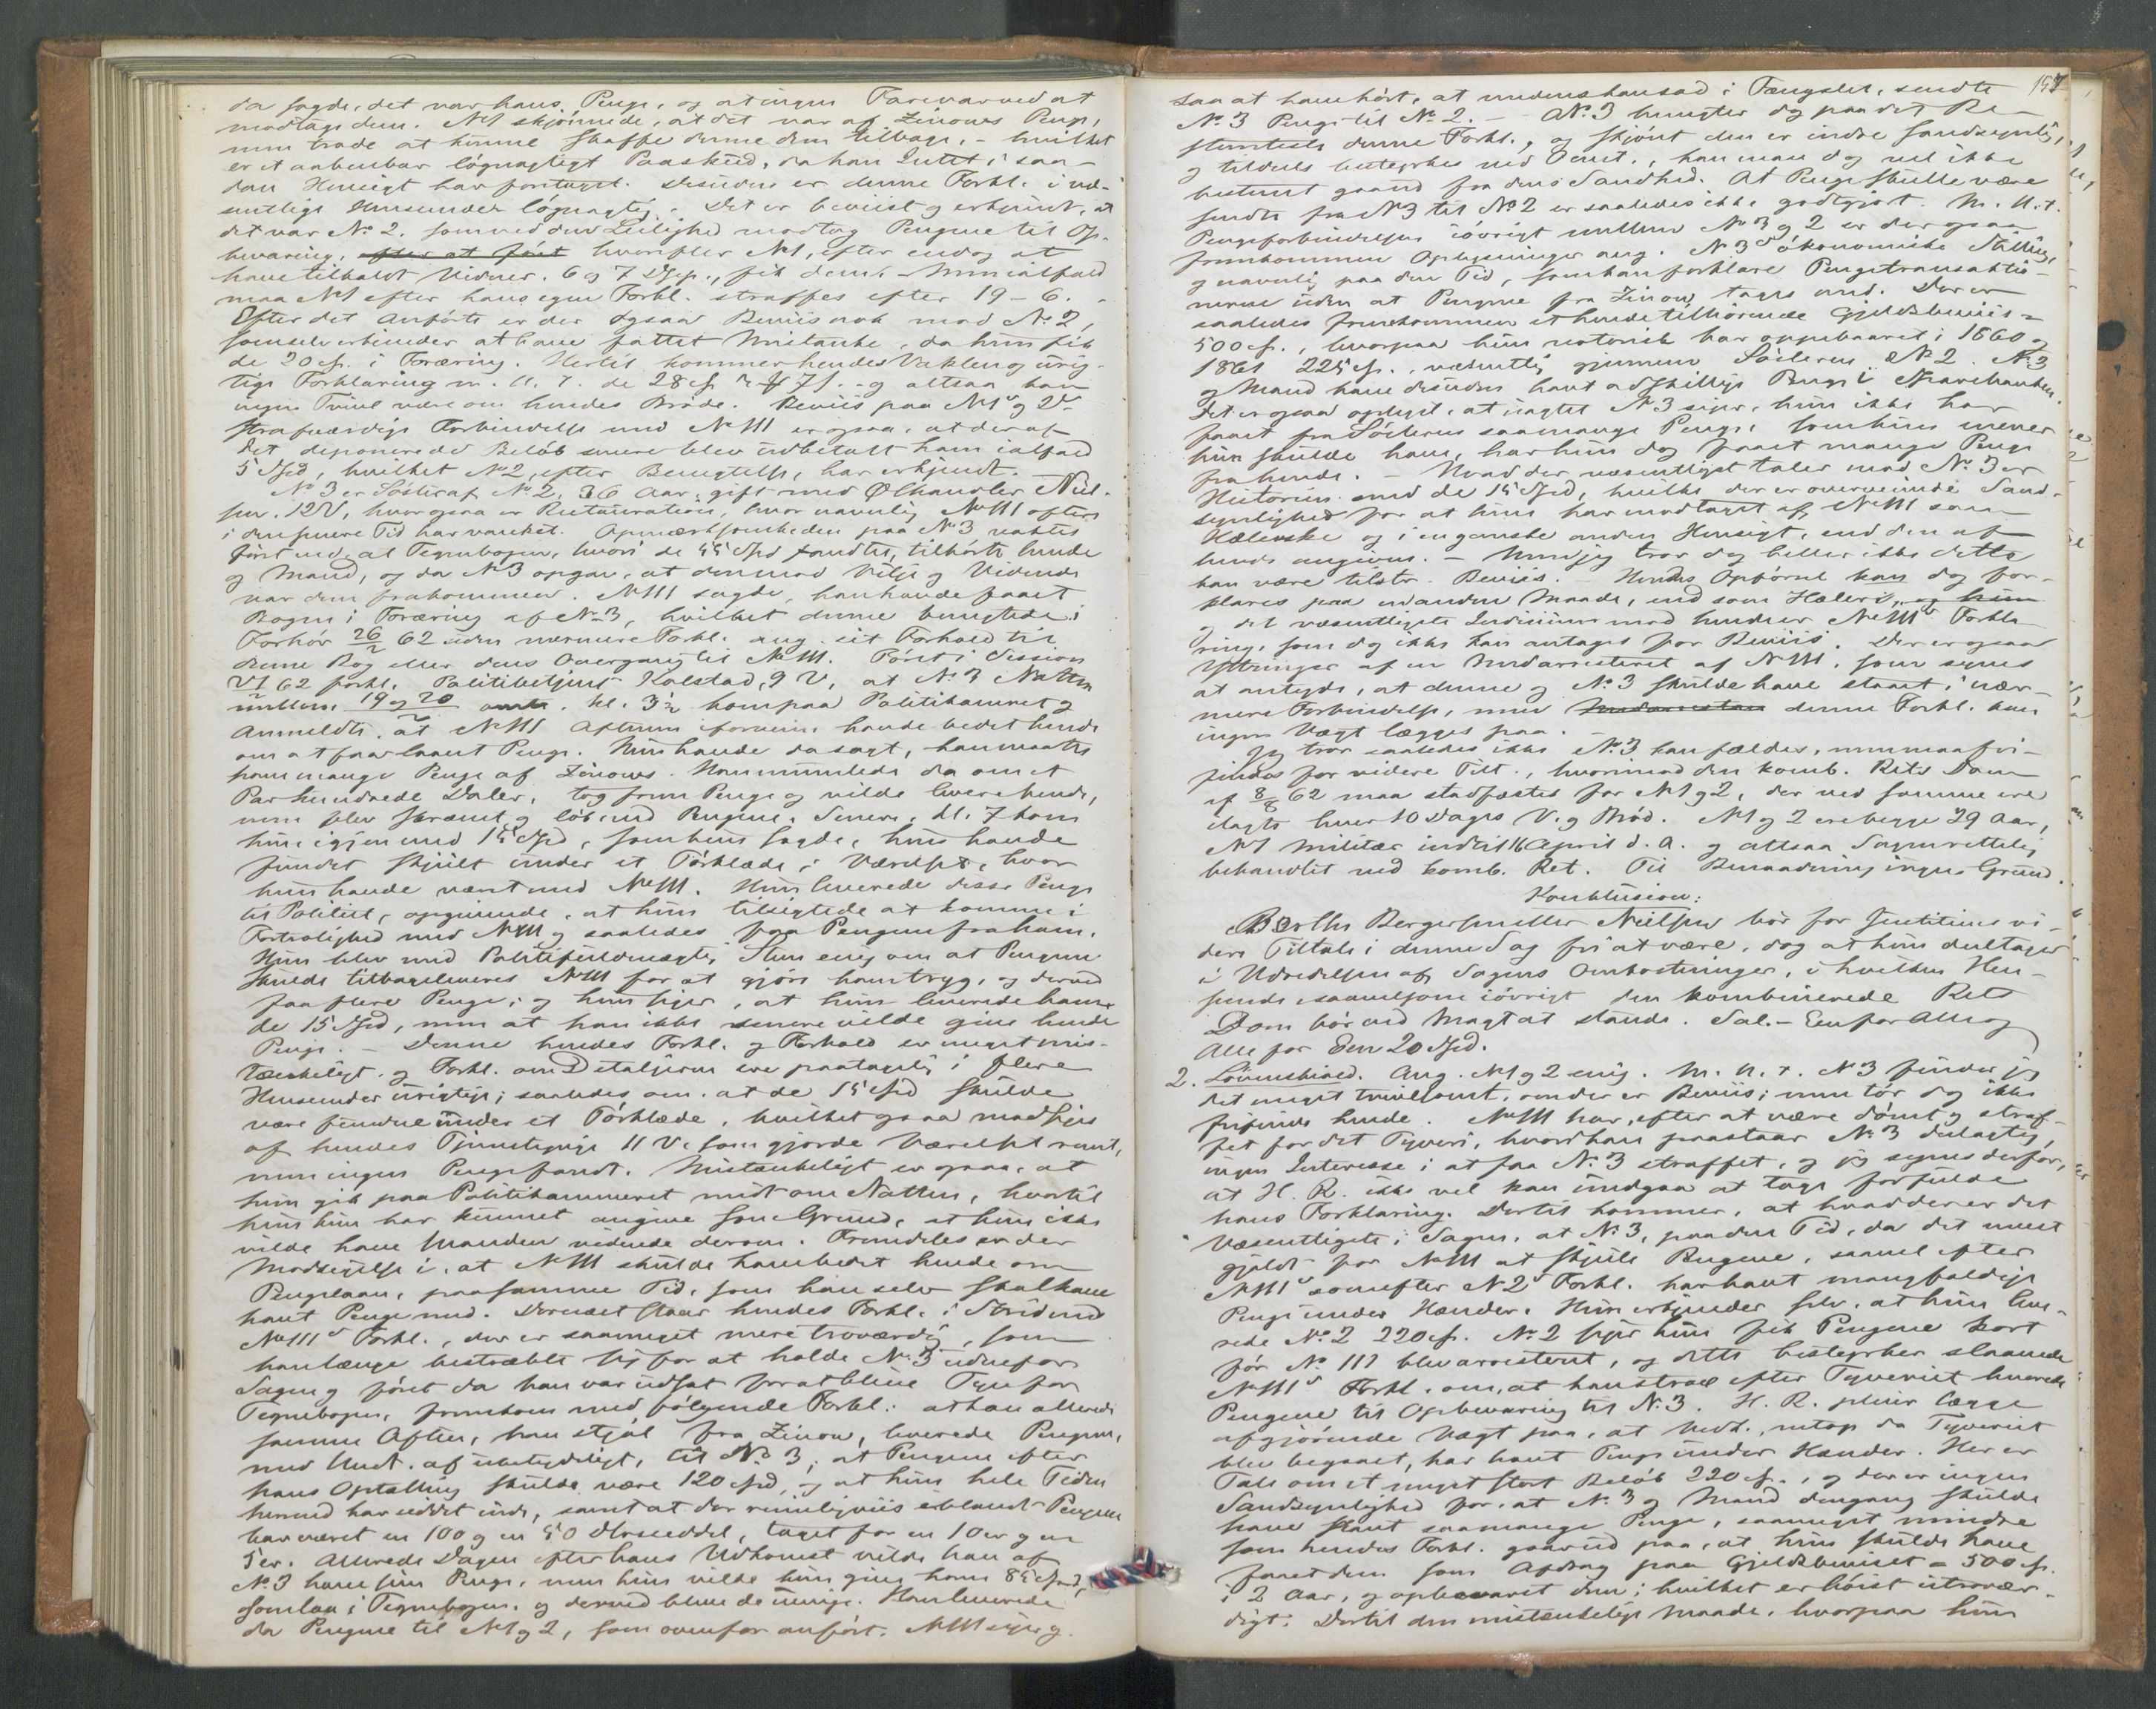 da sagde, det var hans Penge, og at ingen Fare var ved at
modtage dem. N 1 skjønnede, at det var af Zinows Penge,
men troede at kunne skaffe denne dem tilbage, - hvilket
er et aabenbar løgnagtigt Paaskud, da han Intet i saa-
dan Hensigt har foretaget. Desuden er denne Forkl. i væ-
sentlige Henseender løgnagtig. - Det er beviist og erkjendt, at
det var No 2, som ved den Leilighed modtog Pengene til Op-
bevaring, efter at først hvorefter N 1, efter endog at
have tilkaldt Vidner. 6 og 7 Dep., fik dem. - Men ialfald
maa N 1 efter hans egen Forkl. straffes efter 19 - 6. -
Efter det Anførte er der ogsaa Beviis nok mod No 2,
som selv erkjender at have fattet Mistanke, da hun fik
de 20 Sp. i Foræring. Hertil kommer hendes Vaklen og urig-
tige Forklaring m. H. t. de 28 Sp. og altsaa kan
ingen Tvivl være om hendes Brøde. Beviis paa N 1s og 2s
strafværdige Forbindelse med No 111 er ogsaa, at der af
det deponerede Beløb senere blev udbetalt ham ialfald
5 Spd, hvilket No 2, efter Benegtelse, har erkjendt. -
No 3 er Søster af No 2, 36 Aar, gift med Ølhandler Niel-
sen. 12 V, hvor ogsaa er Restauration, hvor navnlig No 111 oftere
i den senere Tid har vanket. Opmærksomheden paa N 3 vaktes
først ved, at Tegnebogen, hvori de 85 Spd fandtes, tilhørte hende
og Mand, og da N 3 opgav, at den mod Vilje og Vidende
var dem frakommen. N 111 sagde, han havde faaet
Bogen i Foræring af No 3, hvilket denne benegtede i
Forhør 26/2 62 uden nærmere Forkl. ang. sit Forhold til
denne Bog eller dens Overgang til No 111. Først i Session
62 forkl. Politibetjent Kolstad, 9 V, at N 3 Natten
mellem 19 og 20 Kl. 3½ kom paa Politikamret og
anmeldte, at N 111 Aftenen iforveien havde bedet hende
om at faae laant Penge. Hun havde da sagt, han maatte
have mange Penge af Zinows. Han mumlede da om et
Par hundrede Daler, tog frem Penge og vilde levere hende,
men blev skræmt og løb med Pengene. Senere, Kl. 7 kom
hun igjen med 15 Spd, som hun sagde, hun havde
fundet skjult under et Tørklæde i Værelset, hvor
hun havde været med No 111. Hun leverede disse Penge
til Politiet, opgivende, at hun tilsigtede at komme i
Fortrolighed med N 111 og saaledes faa Pengene fra ham.
Hun blev med Politifuldmægtig Steen enig om at Pengene
skulde tilbageleveres N 111 for at gjøre ham tryg, og derved
faa flere Penge; og hun siger, at hun leverede ham
de 15 Spd, men at han ikke senere vilde give hende
Penge. - Denne hendes Forkl. og Forhold er meget mis-
tænkeligt, og Forkl. om Detaljerne ere paatagelig i flere
Henseender urigtige; saaledes om, at de 15 Spd skulde
være fundne under et Tørklæde, hvilket ogsaa modsiges
af hendes Tjenestepige 11 V, som gjorde Værelset reent,
men ingen Penge fandt. Mistænkeligt er ogsaa, at
hun gik paa Politikammeret midt om Natten, hvortil
hun kun har kunnet angive som Grund, at hun ikke
vilde have Manden vidende derom. Fremdeles er der
Modsigelse i, at N 111 skulde have bedet hende om
Pengelaan, paa samme Tid, som han selv skal have
havt Penge med. Dernæst staar hendes Forkl. i Strid med
No 111s Forkl., der er saameget mere troværdig, som
han længe bestræbte sig for at holde N. 3 udenfor
Sagen og først da han var udsat for at blive Tyv for
Tegnebogen, fremkom med følgende Forkl.: at han allerede
samme Aften, han stjal fra Zinow, leverede Pengene,
med Undt. af ubetydeligt, til No 3; at Pengene efter
hans Optælling skulde være 120 Spd, og at hun hele Tiden
hermed har siddet inde, samt at der rimeligviis iblandt Pengene
har været en 100 og en 50 Dlrseddel, taget for en 10er og en
5er. Allerede Dagen efter hans Udkomst vilde han af
No 3 have sine Penge, men hun vilde kun give ham 85 Spd,
som laa i Tegnebogen, og derved bleve de uenige. Han leverede
da Pengene til N 1 og 2, som ovenfor anført. N 111 siger og
197
saa at have hørt, at medens han sad i Fængslet, sendte
No 3 Penge til No 2. - No. 3 benegter dog paa det Be-
stemteste denne Forkl., og skjønt den er indre sandsynlig,
og tildeels bestyrkes ved Omst., kan man dog vel ikke
bestemt gaa ud fra dens Sandhed. At Penge skulle være
sendte fra N 3 til No 2 er saaledes ikke godtgjort. M. H. t.
Pengeforbindelsen iøvrigt mellem No 3 og 2 er der ogsaa
fremkommen Oplysninger ang. N 3s økonomiske Stilling,
og navnlig paa den Tid, som han forklarer Pengetransaktio-
nerne uden at Pengene fra Zinow tages med. Der er
saaledes fremkommen et hende tilhørende Gjeldsbeviis =
500 Sp., hvorpaa hun notorisk har oppebaaret i 1860 og
1861 225 Sp., væsentlig gjennem Søsteren No 2. No 3
og Mand have desuden havt adskillige Penge i Sparebanken.
Det er ogsaa oplyst, at uagtet N 3 siger, hun ikke har
faaet fra Søsteren saamange Penge, som hun mener
hun skulde have, har hun dog faaet mange Penge
fra hende. - Hvad der væsentligst taler mod No. 3 er
Historien med de 15 Spd, hvilke der er overveiende Sand-
synlighed for at hun har modtaget af No 111 som
Hælerske og i en ganske anden Hensigt, end den af
hende angivne. - Men jeg tror dog heller ikke dette
kan være tilstr. Beviis. - Hendes Opførsel kan dog for-
klares paa en anden Maade, end som Hæleri, og hun
og det væsentligste Indicium mod hende er No 111s Forkla-
ring, som dog ikke kan antages for Beviis. Der er ogsaa
Yttringer af en Medarresteret af N 111, som synes
at antyde, at denne og No. 3 skulde have staaet i nær-
mere Forbindelse, men Medarrestan denne Forkl. kan
ingen Vægt lægges paa. -
Jeg tror saaledes ikke No. 3 kan fældes, men maa fri-
findes for videre Tilt., hvorimod den komb. Rets Dom
af 8/8 62 maa stadfæstes for N 1 og 2, der ved samme ere
ilagte hver 10 Dages V. og Brød. N 1 og 2 ere begge 29 Aar,
N 1 Militær indtil 16 April d. A. og altsaa Sagen rettelig
behandlet ved komb. Ret. Til Benaadning ingen Grund.
Konklusion:
Berthe Bergersen eller Nielsen bør for Justitiens vi-
dere Tiltale i denne Sag fri at være, dog at hun deeltager
i Udredelsen af Sagens Omkostninger, i hvilken Hen-
seende saavelsom iøvrigt den kombinerede Rets
Dom bør ved Magt at stande. Sal. - Een for Alle og
Alle for Een 20 Spd.
2. Løvenskiold. Ang. N 1 og 2 enig. M. H. t. No 3 finder jeg
det meget tvivlsomt, om der er Beviis; men tør dog ikke
frifinde hende. No 111 har, efter at være dømt og straf-
fet for det Tyveri, hvori han paastaar No. 3 delagtig,
ingen Interesse i at faa No. 3 straffet, og jeg synes derfor,
at H. R. ikke vel kan undgaa at tage for fulde
hans Forklaring. Dertil kommer, at hvad der er det
Væsentligste i Sagen, at No. 3, paa den Tid, da det meest
gjældt for N 111 at skjule Pengene, saavel efter
N 111s som efter N 2s Forkl. har havt mangfoldige
Penge under Hænder. Hun erkjender selv, at hun leve-
rede No. 2 220 Sp. No. 2 siger hun fik Pengene kort
før No. 111 blev arresteret, og dette bestyrker slaaende
N 111s Forkl. om, at han strax efter Tyveriet leverede
Pengene til Opbevaring til N. 3. H. R. pleier lægge
afgjørende Vægt paa, at Vedk., netop da Tyveriet
blev begaaet, har havt Penge under Hænder. Her er
Tale om et meget stort Beløb 220 Sp., og der er ingen
Sandsynlighed for, at No. 3 og Mand dengang skulde
have havt saamange Penge, saameget mindre
som hendes Forkl. gaar ud paa, at hun skulde have
faaet dem som Afdrag paa Gjeldsbeviset = 500 Sp.
i 2 Aar, og opbevaret dem; hvilket er høist utrovær-
digt. Dertil den mistænkelige Maade, hvorpaa hun